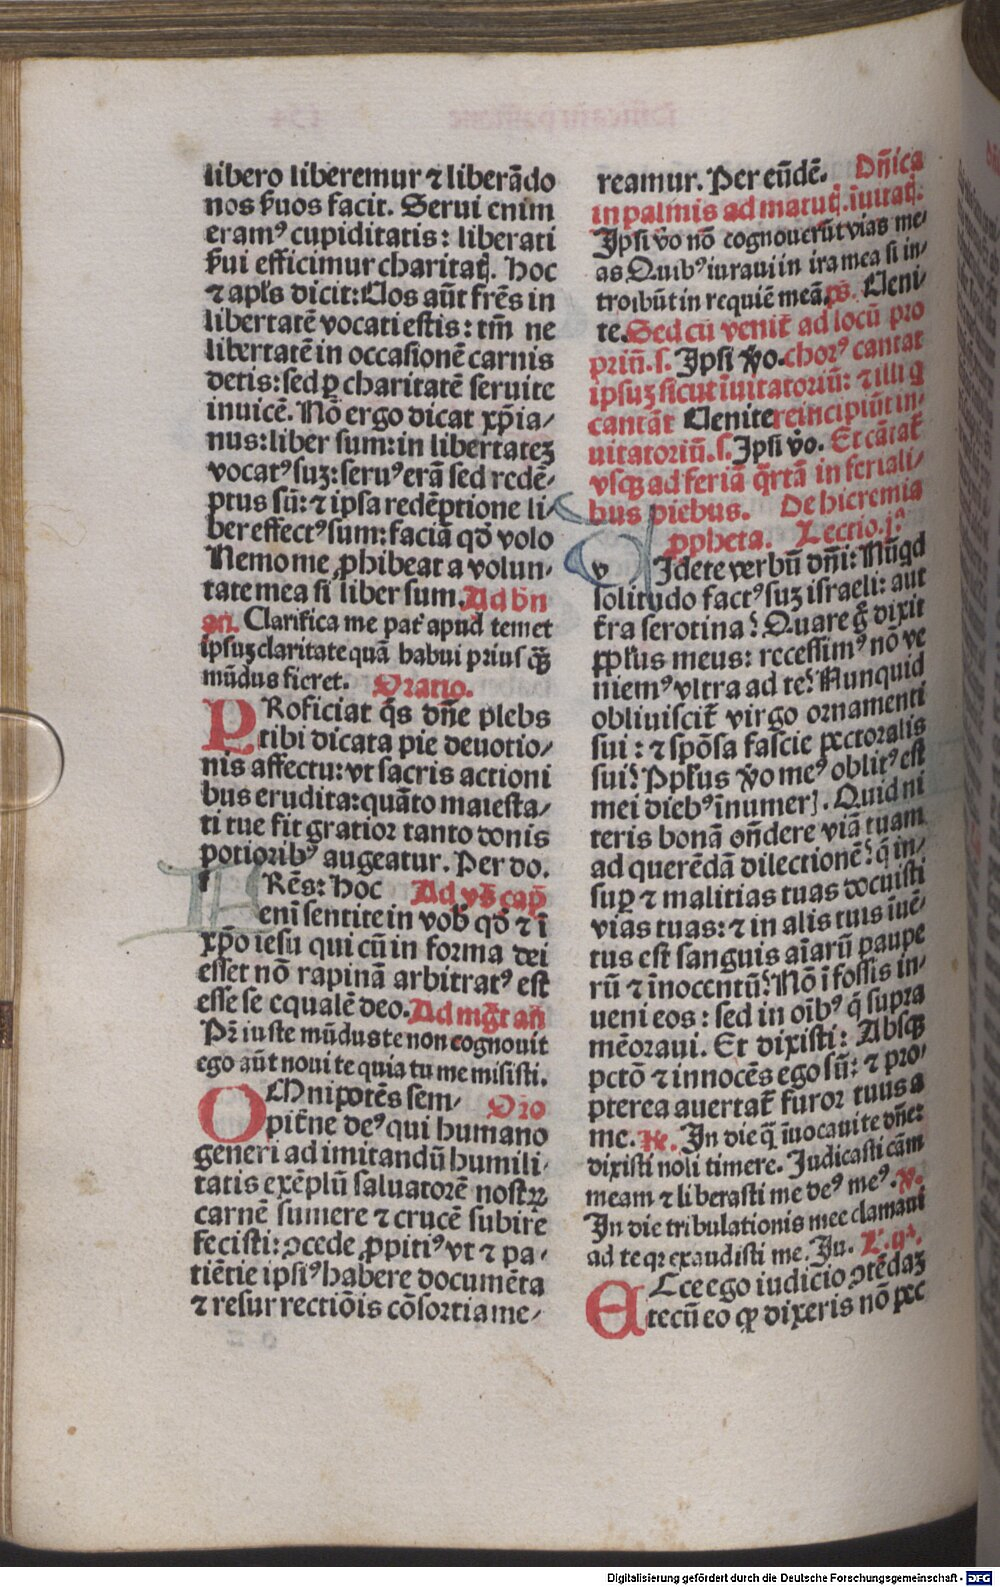 libero liberemur ⁊ liberādo
nos ẜuos facit. Serui enim
eramꝰ cupiditatis: liberati
ẜui efficimur charitatꝭ. Hoc
⁊ apl's dicit: Uos aūt frēs in
libertatē vocati estis: tm̄ ne
libertatē in occasionē carnis
detis: sed ꝑ charitatē seruite
inuicē. Nō ergo dicat xp̄ia/
nus: liber sum: in libertateꝫ
vocatꝰ suꝫ: seruꝰ erā sed redē/
ptus sū: ⁊ ipsa redēptione li/
ber effectꝰ sum: faciā qđ volo
Nemo me ꝓhibeat a volun/
tate mea si liber sum. Ad bn̄
an̄. Clarifica me pat̄ apud temet
ipsuꝫ claritate quā habui priusꝙ̄
mūdus fieret. Oratio.
PRoficiat q̄s dn̄e plebs
tibi dicata pie deuotio/
nis affectu: vt sacris actioni
bus erudita: quāto maiesta/
ti tue fit gratior tanto donis
potioribꝰ augeatur. Per do.
FRēs: hoc Ad vs̄ cap̄
eni sentite in vob̄ qđ ⁊ ī
xp̄o iesu qui cū in forma dei
esset nō rapinā arbitratꝰ est
esse se equalē deo. Ad mḡt an̄
Pr̄ iuste mūdus te non cognouit
ego aūt noui te quia tu me misisti.
OMnipotēs sem/ Oro
pit̄ne deꝰ qui humano
generi ad imitandū humili/
tatis exēplū saluatorē nostrꝝ
carnē sumere ⁊ crucē subire
fecisti: ꝯcede ꝓpitiꝰ vt ⁊ pa/
tiētie ipsiꝰ habere documēta
⁊ resurrectiōis cōsortia me/
reamur. Per eūdē. Dn̄ica
in palmis ad matutꝭ. īuitatꝭ.
Ipsi v̄o nō cognouerūt vias me/
as Quibꝰ iuraui in ira mea si in/
troibūt in requiē meā. ps̄. Ueni/
te. Sed cū venit̄ ad locū pro
priū. s. Ipsi v̄o. chorꝰ cantat
ipsuꝫ sicut īuitatoriū: ⁊ illi q̄
cantāt Uenite reincipiūt in/
uitatoriū. s. Ipsi v̄o. Et cātat̄
vsqꝫ ad feriā q̄rtā in feriali/
bus diebus. De hieremia
ꝓpheta. Lectio. jᵃ
vIdete verbū dn̄i: Nūqd
solitudo factꝰ suꝫ israeli: aut
t̄ra serotina? Quare g̊ dixit
ppl'us meus: recessimꝰ nō ve
niemꝰ vltra ad te? Nunquid
obliuiscit̄ virgo ornamenti
sui: ⁊ spōsa fascie pectoralis
sui? Ppl'us v̄o meꝰ oblitꝰ est
mei diebꝰ īnumerꝭ. Quid ni
teris bonā on̄dere viā tuam
ad querēdā dilectionē? q̄ in/
suꝑ ⁊ malitias tuas docuisti
vias tuas: ⁊ in alis tuis iuē/
tus est sanguis aīarū paupe
rū ⁊ īnocentū? Nō ī fossis in/
ueni eos: sed in oībꝰ q̄ supra
mēoraui. Et dixisti: Absqꝫ
pctō ⁊ innocēs ego sū: ⁊ pro/
pterea auertat̄ furor tuus a
me. ℞. In die q̄ īuocaui te dn̄e:
dixisti noli timere. Iudicasti cām
meam ⁊ liberasti me deꝰ meꝰ. ℣.
In die tribulationis mee clamaui
ad te qꝛ exaudisti me. In. L'. ijᵃ.
ECce ego iudicio ꝯtēdaꝫ
tecū eo ꝙ dixeris nō pec
Digitalisierung gefördert durch die Deutsche Forschungsgemeinschaft - DFG